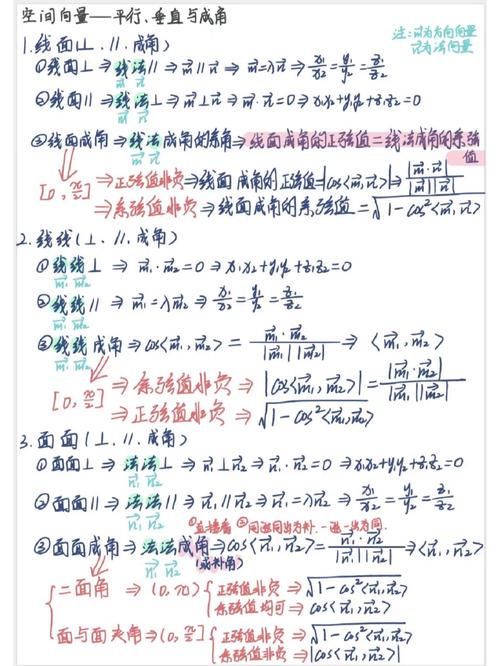 空间向量——平行、垂直与成角
注:m⃗为方向向量
n⃗为法向量
1.线面(⊥、∥、成角)
①线面⊥⇒线法∥⇒m⃗∥n⃗⇒m⃗=λn⃗⇒x₁/x₂=y₁/y₂=z₁/z₂
m⃗ n⃗
②线面∥⇒线法⊥⇒m⃗⊥n⃗⇒m⃗·n⃗=0⇒x₁x₂+y₁y₂+z₁z₂=0
m⃗ n⃗
③线面成角⇒线法成角的余角⇒线面成角的正弦值=线法成角的余弦值
m⃗ n⃗
[0,π/2]⇒正弦值非负⇒线面成角的正弦值=|cos<m⃗,n⃗>|⇒|m⃗·n⃗|/|m⃗||n⃗|
⇒余弦值非负⇒线面成角的余弦值=√1-cos²<m⃗,n⃗>
2.线线(⊥、∥、成角)
①线线⊥⇒m⃗₁·m⃗₂=0⇒x₁x₂+y₁y₂+z₁z₂=0
m⃗₁ m⃗₂
②线线∥⇒m⃗₁=λm⃗₂⇒x₁/x₂=y₁/y₂=z₁/z₂
m⃗₁ m⃗₂
③线线成角⇒cos<m⃗₁,m⃗₂>=m⃗₁·m⃗₂/|m⃗₁||m⃗₂|⇒<m⃗₁,m⃗₂>
m⃗₁ m⃗₂
[0,π/2]⇒余弦值非负⇒|cos<m⃗₁,m⃗₂>|=|m⃗₁·m⃗₂|/|m⃗₁||m⃗₂|
⇒正弦值非负⇒√1-cos²<m⃗₁,m⃗₂>
3.面面(⊥、∥、成角)
①面面⊥⇒法法⊥⇒n⃗₁⊥n⃗₂⇒n⃗₁·n⃗₂=0⇒x₁x₂+y₁y₂+z₁z₂=0
n⃗₁ n⃗₂
②面面∥⇒法法∥⇒n⃗₁∥n⃗₂⇒n⃗₁=λn⃗₂⇒x₁/x₂=y₁/y₂=z₁/z₂
n⃗₁ n⃗₂
①直接看 ②同进同出为补、一进一出为同
③面面成角⇒法法成角⇒cos<n⃗₁,n⃗₂>=n⃗₁·n⃗₂/|n⃗₁||n⃗₂|⇒<n⃗₁,n⃗₂>
n⃗₁ n⃗₂ (或补角)
二面角⇒(0,π){正弦值非负⇒√1-cos²<n⃗₁,n⃗₂>
余弦值均可⇒cos<n⃗₁,n⃗₂>
面与面夹角⇒(0,π/2]{正弦值非负⇒√1-cos²<n⃗₁,n⃗₂>
余弦值非负⇒|cos<n⃗₁,n⃗₂>|